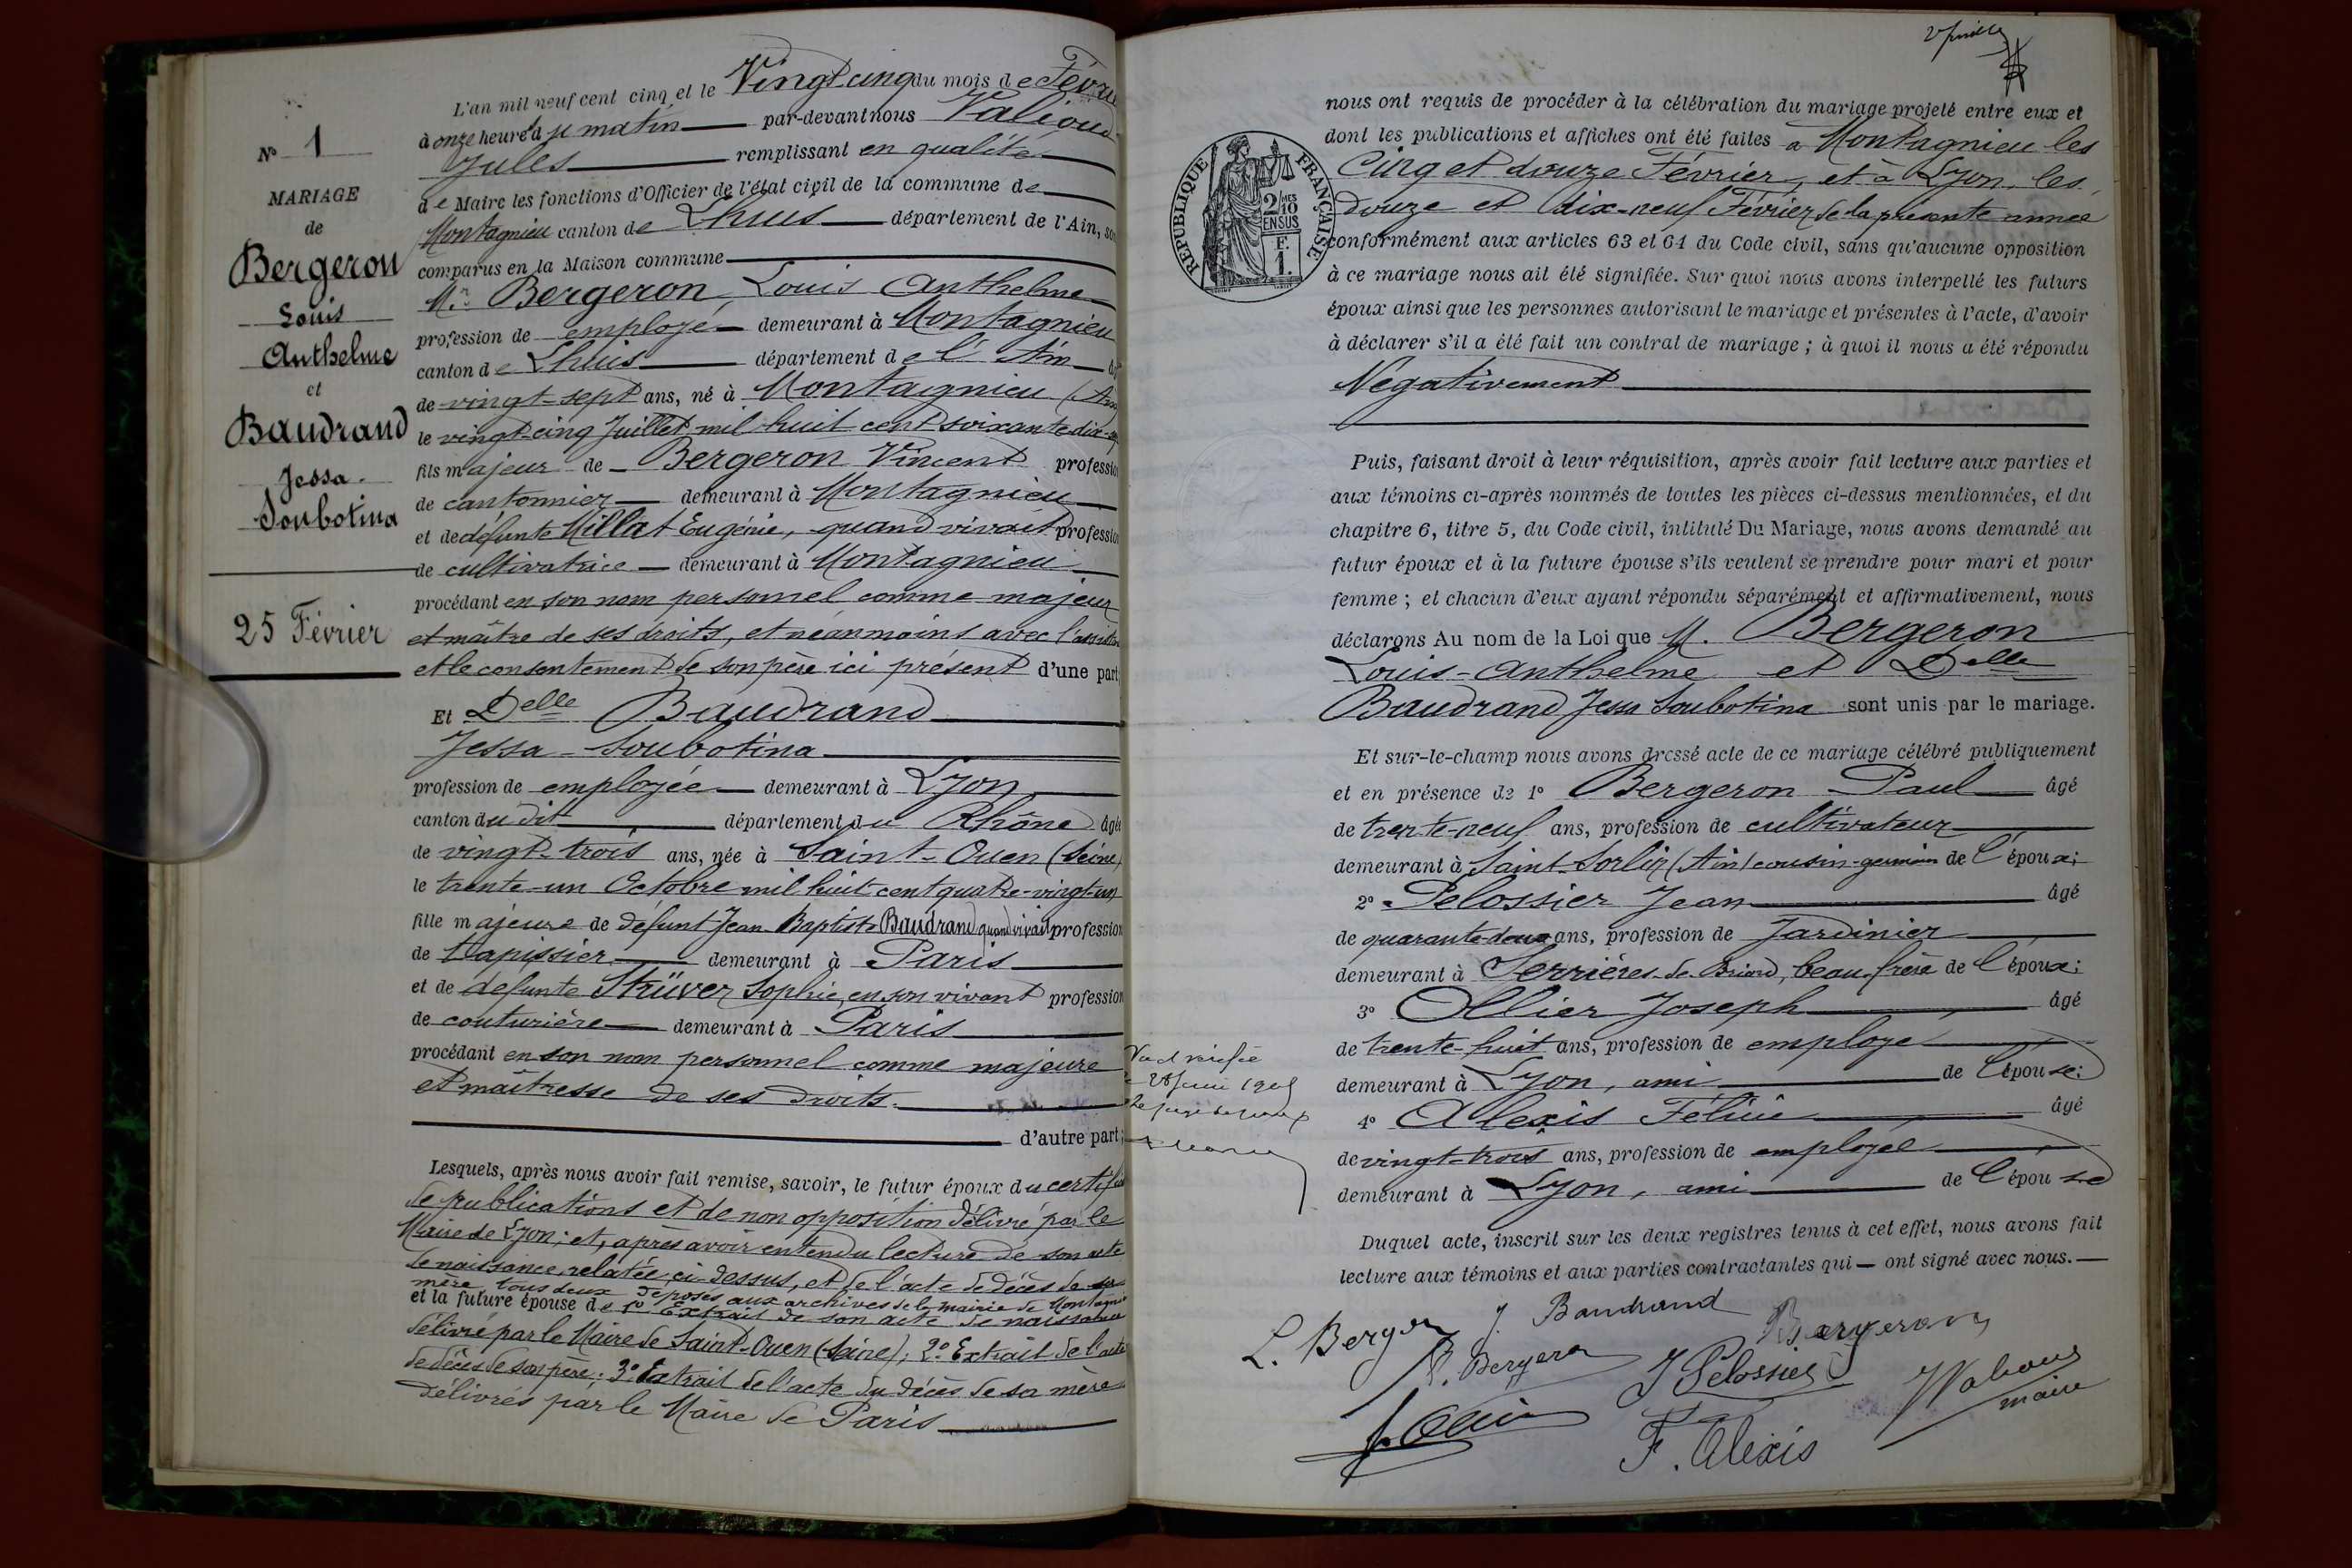 N° 1
MARIAGE
de
Bergeron
Louis
Anthelme
et
Baudrand
Jessa
Soubotina
25 Février
L'an mil neuf cent cinq et le Vingt-cinq du mois de Févri
à onze heure du matin par-devant nous Valioud
Jules remplissant en qualité
de Maire les fonctions d'Officier de l'état civil de la commune de
Montagnieu canton de Lhuis département de l'Ain, so
comparus en la Maison commune
Mr. Bergeron, Louis Anthelme
profession de employé demeurant à Montagnieu
canton de Lhuis département de l'Ain
de vingt-sept ans, né à Montagnieu (Ain
le vingt-cinq Juillet mil huit cent soixante-dix-sep
fils majeur de Bergeron Vincent profession
de cantonnier demeurant à Montagnieu
et de défunte Millat Eugénie, quand vivait profession
de cultivatrice demeurant à Montagnieu
procédant en son nom personnel comme majeur
et maître de ses droits, et néanmoins avec l'assista
et le consentement de son père ici présent d'une part;
Et Delle Baudrand
Jessa-Soubotina
profession de employée demeurant à Lyon
canton du dit département du Rhône âgée
de vingt-trois ans, née à Saint-Ouen (Seine)
le trente-un Octobre mil huit-cent quatre-vingt-un
fille majeure de défunt Jean Baptiste Baudrand quand vivait profession
de tapissier demeurant à Paris
et de défunte Strüver Sophie, en son vivant profession
de couturière demeurant à Paris
procédant en son nom personnel comme majeure
et maîtresse de ses droits.
d'autre part;
Lesquels, après nous avoir fait remise, savoir, le futur époux du certifi
de publications et de non opposition délivré par le
Maire de Lyon; et, après avoir entendu lecture de son acte
de naissance, relatée ci-dessus, et de l'acte de décès de sa
mère tous deux déposés aux archives de la mairie de Montagnie
et la future épouse de 1° Extrait de son acte de naissance
délivré par le Maire de Saint-Ouen (Seine); 2° Extrait de l'acte
de décès de son père; 3° Extrait de l'acte du décès de sa mère
délivrés par le Maire de Paris
REPUBLIQUE FRANÇAISE
2/10 EN SUS
F. 1.
nous ont requis de procéder à la célébration du mariage projeté entre eux et
dont les publications et affiches ont été faites à Montagnieu les
Cinq et douze Février, et à Lyon, les
douze et dix-neuf Février de la présente année
conformément aux articles 63 et 64 du Code civil, sans qu'aucune opposition
à ce mariage nous ait été signifiée. Sur quoi nous avons interpellé les futurs
époux ainsi que les personnes autorisant le mariage et présentes à l'acte, d'avoir
à déclarer s'il a été fait un contrat de mariage ; à quoi il nous a été répondu
Négativement
Puis, faisant droit à leur réquisition, après avoir fait lecture aux parties et
aux témoins ci-après nommés de toutes les pièces ci-dessus mentionnées, et du
chapitre 6, titre 5, du Code civil, intitulé Du Mariage, nous avons demandé au
futur époux et à la future épouse s'ils veulent se prendre pour mari et pour
femme ; et chacun d'eux ayant répondu séparément et affirmativement, nous
déclarons Au nom de la Loi que M. Bergeron
Louis-Anthelme et Delle
Baudrand Jessa Soubotina sont unis par le mariage.
Et sur-le-champ nous avons dressé acte de ce mariage célébré publiquement
et en présence de 1° Bergeron Paul âgé
de trente-neuf ans, profession de cultivateur
demeurant à Saint-Sorlin (Ain) cousin-germain de l'époux;
2° Pelossier Jean âgé
de quarante-deux ans, profession de Jardinier
demeurant à Serrières-de-Briord, beau-frère de l'époux;
3° Ollier Joseph âgé
de trente-huit ans, profession de employé
demeurant à Lyon, ami de l'épouse;
4° Alexis Félicie âgé
de vingt-trois ans, profession de employée
demeurant à Lyon, ami de l'épouse
Duquel acte, inscrit sur les deux registres tenus à cet effet, nous avons fait
lecture aux témoins et aux parties contractantes qui — ont signé avec nous. —
L. Berger J. Baudrand Bergeron
P. Bergeron J Pelossier J Valioud
maire
J. Ollier
F. Alexis